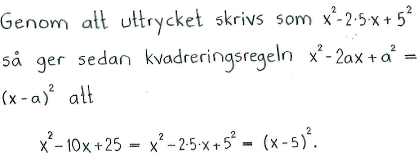 Genom att uttrycket skrivs som x²-2·5·x+5²
så ger sedan kvadreringsregeln x²-2ax+a² =
(x-a)² att
x²-10x+25 = x²-2·5·x+5² = (x-5)².